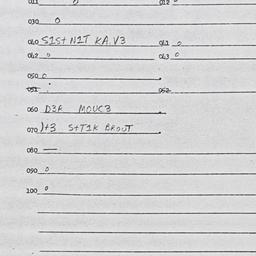 011 0 012 0
030 0
040 S1St N1T KA.V3 041 0
062 0 063 0
050 0 .
051 : 052
060 D3R MOUC3 .
070 )+3 S+T1K BROUT .
080 —
090 0
100 0